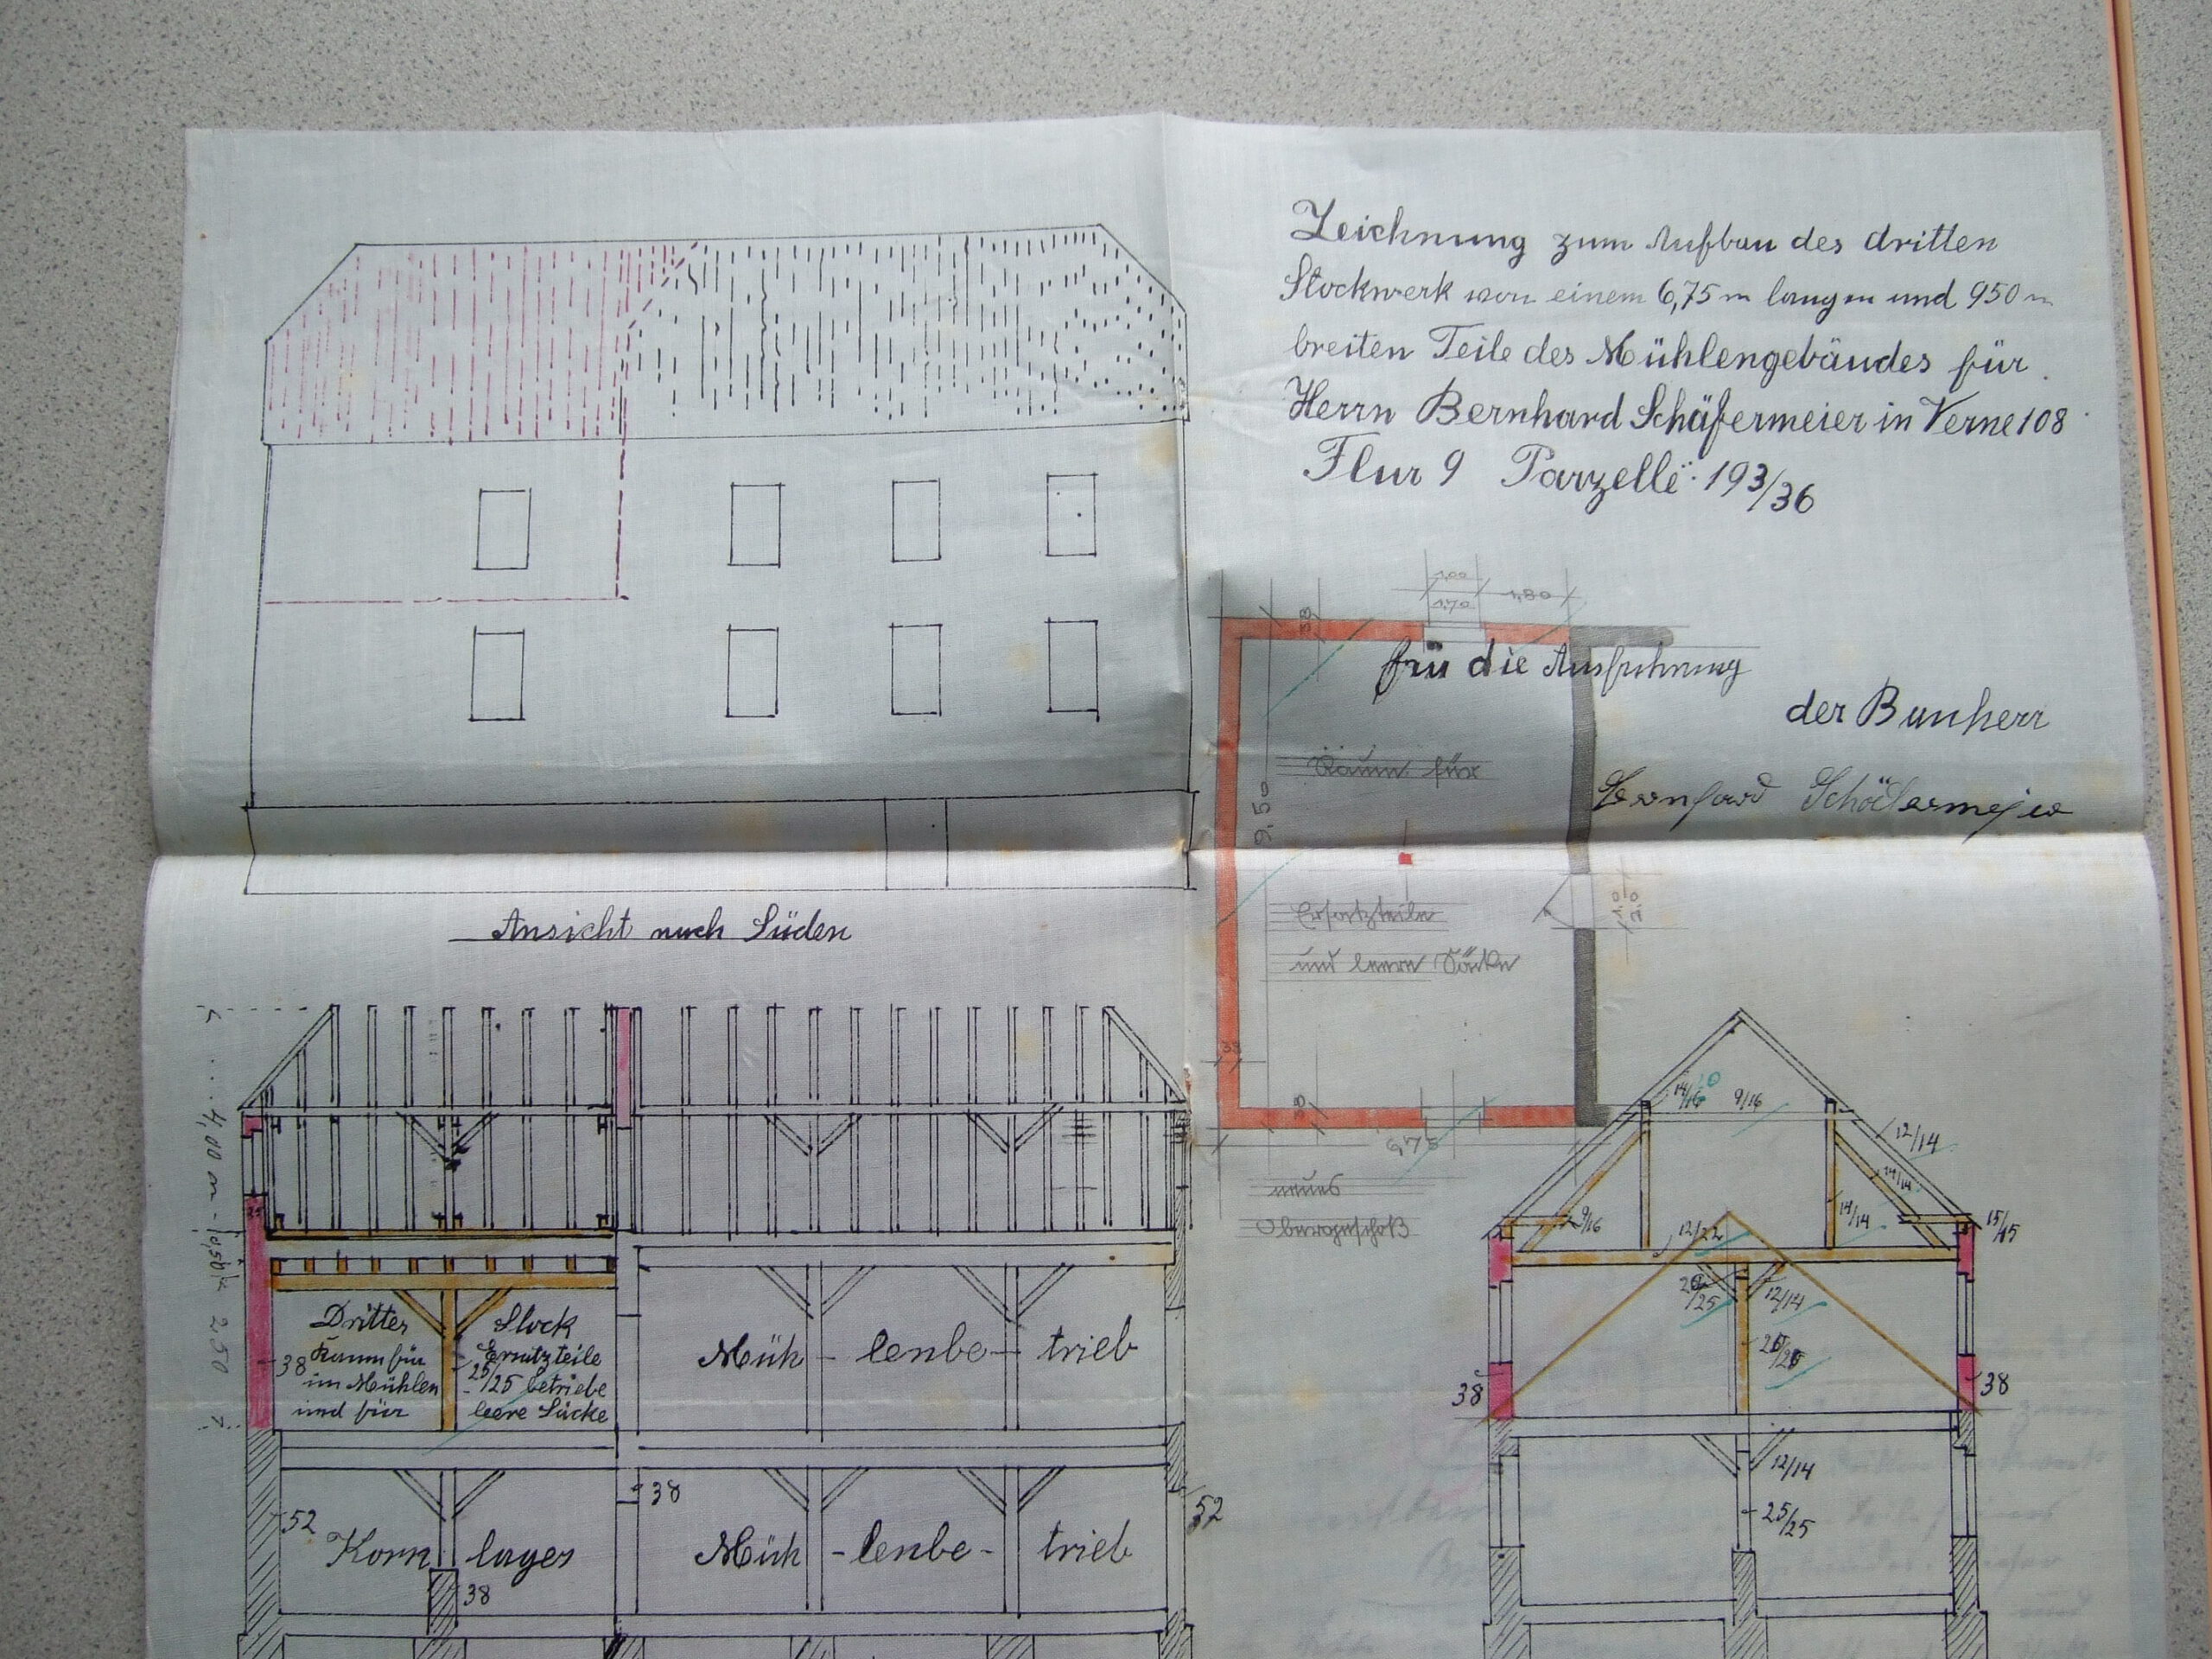 Zeichnung zum Aufbau des dritten
Stockwerk von einem 6,75 m langen und 950 m
breiten Teile des Mühlengebäudes für
Herrn Bernhard Schäfermeier in Verne 108
Flur 9 Parzelle 193/36
1,00
1,70
1,80
38
frü die Ausführung
der Bauherr
Bernhard Schäfermeier
Raum für
9,50
Ersatzteile
und leere Säcke
38
6,75
neues
Obergeschoß
Ansicht nach Süden
4,00 m
2 50
25
Dritter Stock
Raum für Ersatzteile
im Mühlen betriebe
und für leere Säcke
38
25/25
Müh - lenbe - trieb
52
Korn lager
38
38
Müh - lenbe - trieb
52
14/16
9/16
12/14
14/14
9/16
12/22
14/14
15/15
12/14
38
38
12/14
25/25